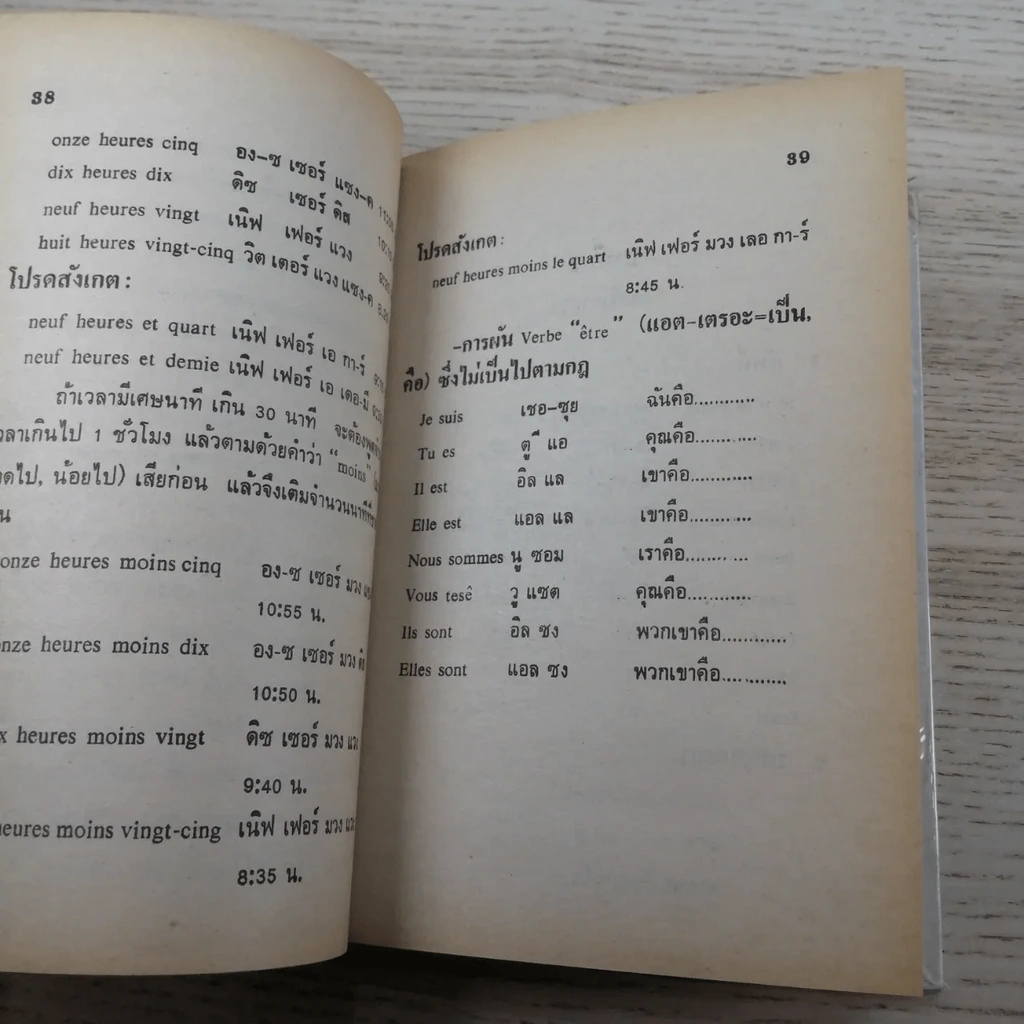 38
onze heures cinq อง-ซ เซอร์ แซง-ค
dix heures dix ดิซ เซอร์ ดิส
neuf heures vingt เนิฟ เฟอร์ แวง
huit heures vingt-cinq วิต เตอร์ แวง แซง-ค
โปรดสังเกต :
neuf heures et quart เนิฟ เฟอร์ เอ กา-ร์
neuf heures et demie เนิฟ เฟอร์ เอ เดอ-มี
ถ้าเวลามีเศษนาที เกิน 30 นาที จะต้อง
เกินไป 1 ชั่วโมง แล้วตามด้วยคำว่า "moins"
น้อยไป) เสียก่อน แล้วจึงเติมจำนวนนาที
onze heures moins cinq อง-ซ เซอร์ มวง
10:55 น.
heures moins dix อง-ซ เซอร์ มวง
10:50 น.
heures moins vingt ดิซ เซอร์ มวง
9:40 น.
moins vingt-cing เนิฟ เฟอร์ มวง
8:35 น.
39
โปรดสังเกต :
neuf heures moins le quart เนิฟ เฟอร์ มวง เลอ กา-ร์
8:45 น.
-การผัน Verbe "être" (แอต-เตรอะ=เป็น,
คือ) ซึ่งไม่เป็นไปตามกฎ
Je suis เชอ-ซุย ฉันคือ............
Tu es ตู ี แอ คุณคือ............
Il est อิล แล เขาคือ............
Elle est แอล แล เขาคือ............
Nous sommes นู ซอม เราคือ............
Vous tesê วู แซต คุณคือ............
Ils sont อิล ซง พวกเขาคือ............
Elles sont แอล ซง พวกเขาคือ............